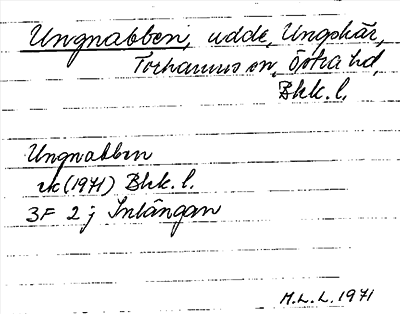 Ungnabben, udde, Ungskär,
Torhamns sn, Östra hd,
Blek. l.
Ungnabben
ek (1971) Blek. l.
3F 2 j Inlängan
M.L.L. 1971